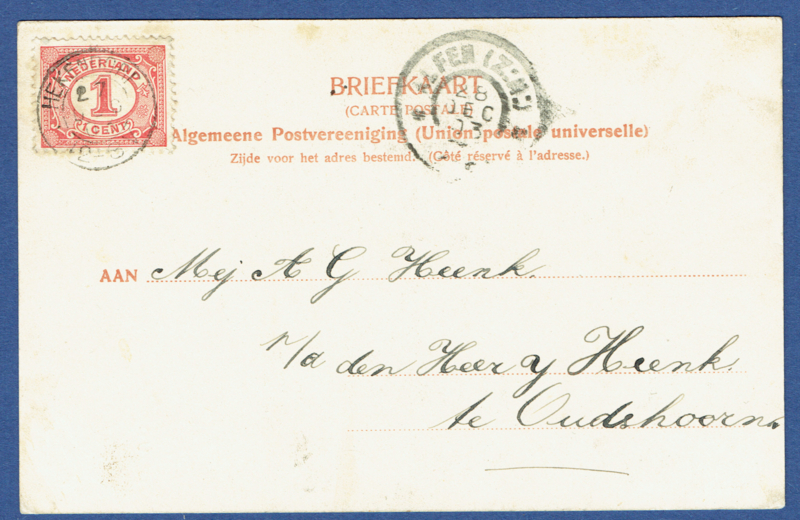 NEDERLAND
1
(1 CENT)
BRIEFKAART
(CARTE POSTALE)
Algemeene Postvereeniging (Union postale universelle)
Zijde voor het adres bestemd. (Côté réservé à l'adresse.)
28
DEC
AAN Mej A G Heenk.
p/a den Heer y Heenk.
te Oudshoorn.